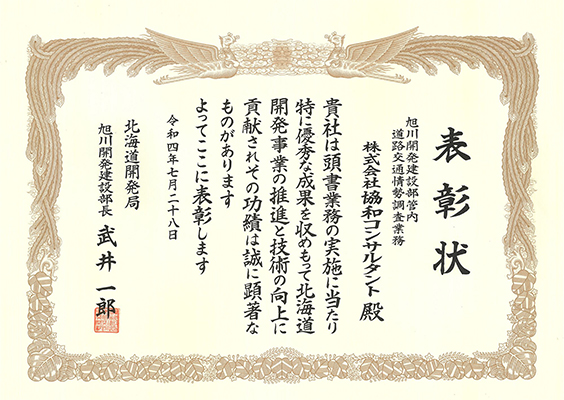 表彰状
旭川開発建設部管内
道路交通情勢調査業務
株式会社協和コンサルタント 殿
貴社は頭書業務の実施に当たり
特に優秀な成果を収めもって北海道
開発事業の推進と技術の向上に
貢献されその功績は誠に顕著な
ものがあります
よってここに表彰します
令和四年七月二十八日
北海道開発局
旭川開発建設部長 武井一郎